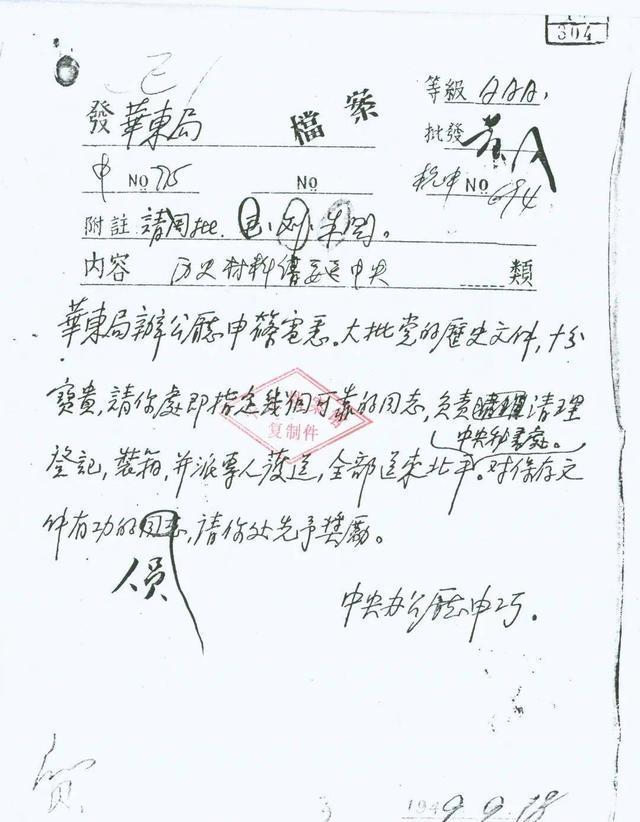 304
等級 AAA.
發 華東局
檔案
批發
申 NO 775
NO
機申 NO 694
附註 請周批.
内容 历史材料 中央 類
華東局辦公廳申篠電悉。大批党的歷史文件，十分
寶貴，請你處即指定幾個可靠的同志，负责清理
中央秘書處。
登記，裝箱，并派專人護送，全部送來北平。对保存文
件有功的同志，請你处先予奖勵。
人員
复制件
中央办公廳申巧。
賀
1949.9.18